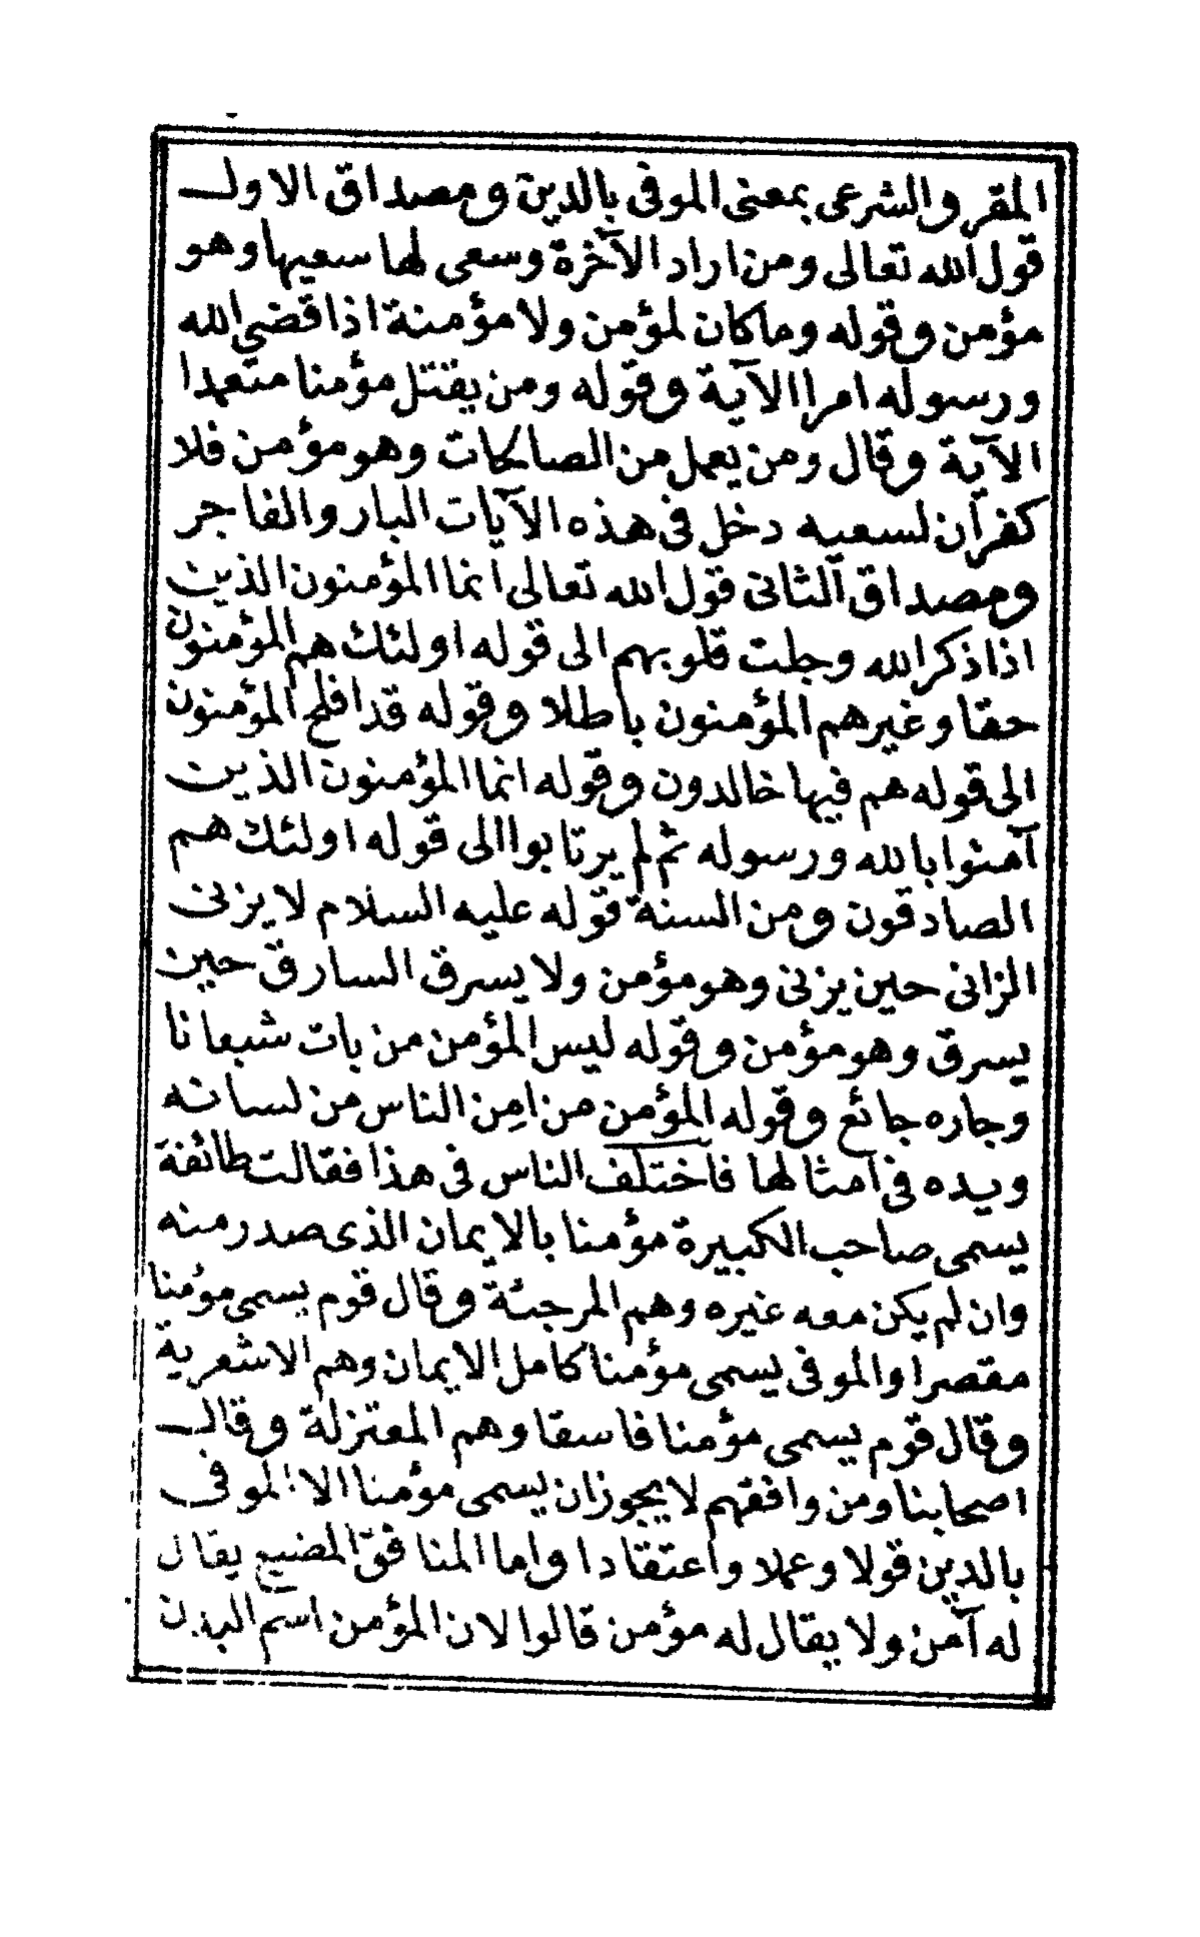 المقر والشرعى بمعنى الموفى بالدين ومصداق الاول
قول الله تعالى ومن اراد الآخرة وسعى لها سعيها وهو
مؤمن وقوله وما كان لمؤمن ولا مؤمنة اذا قضى الله
ورسوله امرا الآية وقوله ومن يقتل مؤمنا متعمدا
الآية وقال ومن يعمل من الصالحات وهو مؤمن فلا
كفران لسعيه دخل فى هذه الآيات البار والفاجر
ومصداق الثانى قول الله تعالى انما المؤمنون الذين
اذا ذكر الله وجلت قلوبهم الى قوله اولئك هم المؤمنون
حقا وغيرهم المؤمنون باطلا وقوله قد افلح المؤمنون
الى قوله هم فيها خالدون وقوله انما المؤمنون الذين
آمنوا بالله ورسوله ثم لم يرتابوا الى قوله اولئك هم
الصادقون ومن السنة قوله عليه السلام لا يزنى
الزانى حين يزنى وهو مؤمن ولا يسرق السارق حين
يسرق وهو مؤمن وقوله ليس المؤمن من بات شبعانا
وجاره جائع وقوله المؤمن من امِن الناس من لسانه
ويده فى امثالها فاختلف الناس فى هذا فقالت طائفة
يسمى صاحب الكبيرة مؤمنا بالايمان الذى صدر منه
وان لم يكن معه غيره وهم المرجئة وقال قوم يسمى مؤمنا
مقصرا والموفى يسمى مؤمنا كامل الايمان وهم الاشعرية
وقال قوم يسمى مؤمنا فاسقا وهم المعتزلة وقال
اصحابنا ومن وافقهم لا يجوز ان يسمى مؤمنا الا الموفى
بالدين قولا وعملا واعتقادا واما المنافق المضيع يقال
له آمن ولا يقال له مؤمن قالوا لان المؤمن اسم البدن